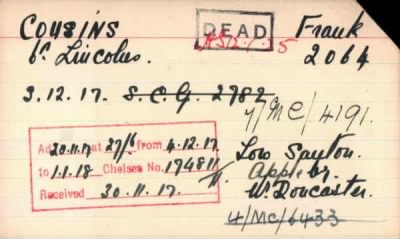 COUSINS DEAD Frank
6th Lincolns. 2064
3.12.17. S.C.G. 2782
4/MC/4191.
Ad 20.11.17 at 27/6 from 4.12.17
to 1.1.18 Chelsea No. 174811
Received 30.11.17.
Low
Appleby.
W. Doncaster.
4/MC/6433